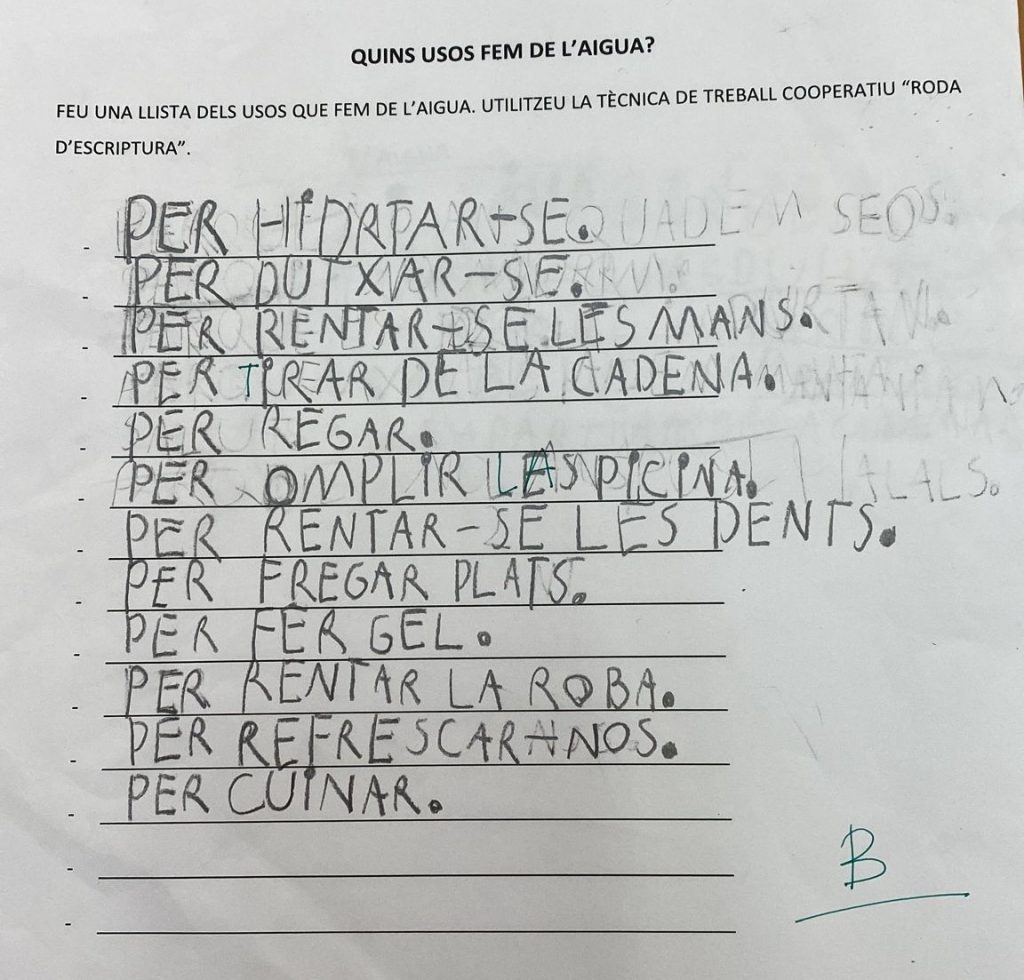 QUINS USOS FEM DE L'AIGUA?
FEU UNA LLISTA DELS USOS QUE FEM DE L'AIGUA. UTILITZEU LA TÈCNICA DE TREBALL COOPERATIU “RODA
D'ESCRIPTURA”.
- PER HIDRTAR-SE.
- PER DUTXAR-SE.
- PER RENTAR-SE LES MANS.
- PER TIRAR DE LA CADENA.
- PER REGAR.
- PER OMPLIR LAS PICINA.
- PER RENTAR-SE LES DENTS.
- PER FREGAR PLATS.
- PER FER GEL.
- PER RENTAR LA ROBA.
- PER REFRESCAR-NOS.
- PER CUINAR.
-
-
B